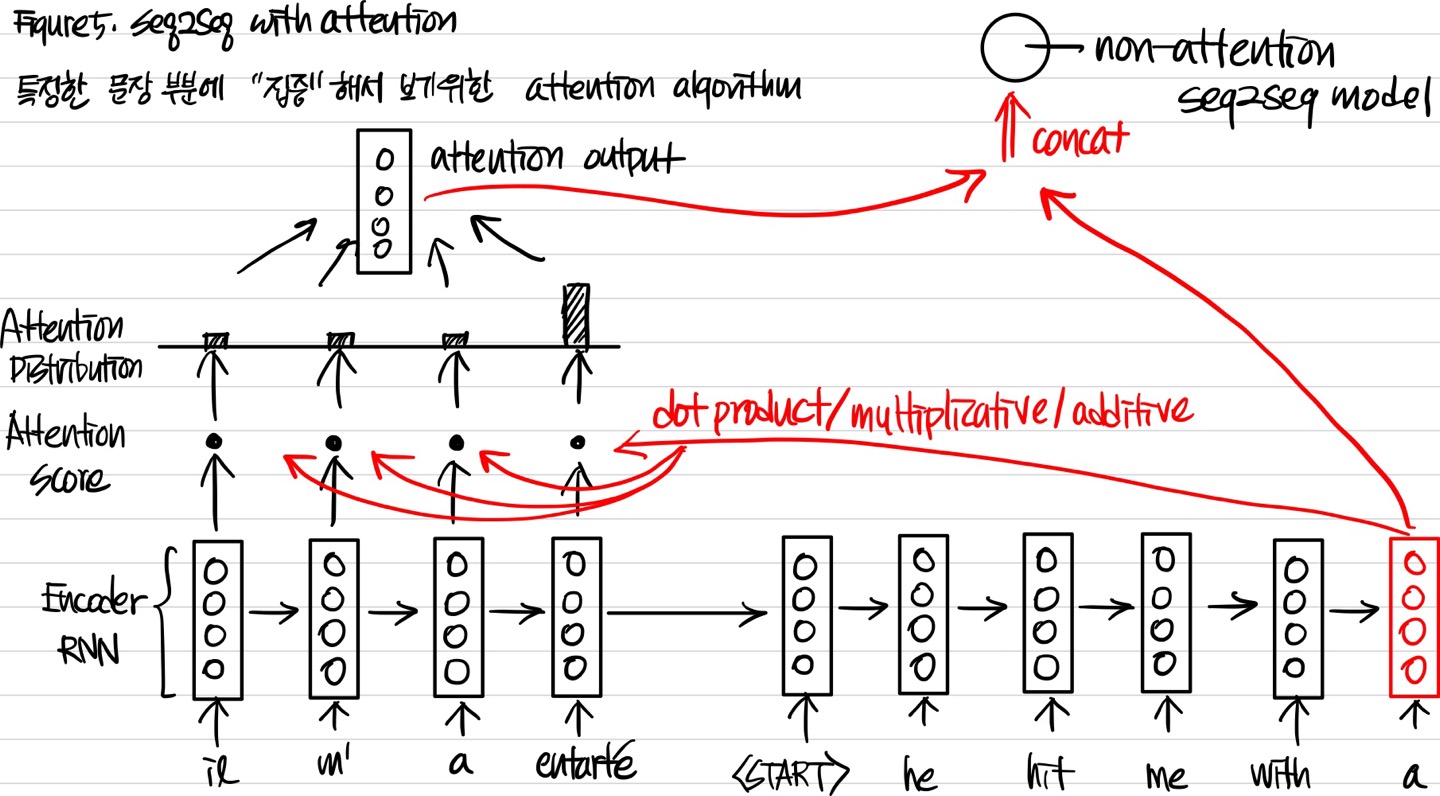 Figure5. seq2seq with attention
특정한 문장 부분에 "집중"해서 보기위한 attention algorithm
non-attention
seq2seq model
concat
attention output
Attention
Distribution
dot product/multiplizative/additive
Attention
score
Encoder
RNN
il m' a entarté <START> he hit me with a